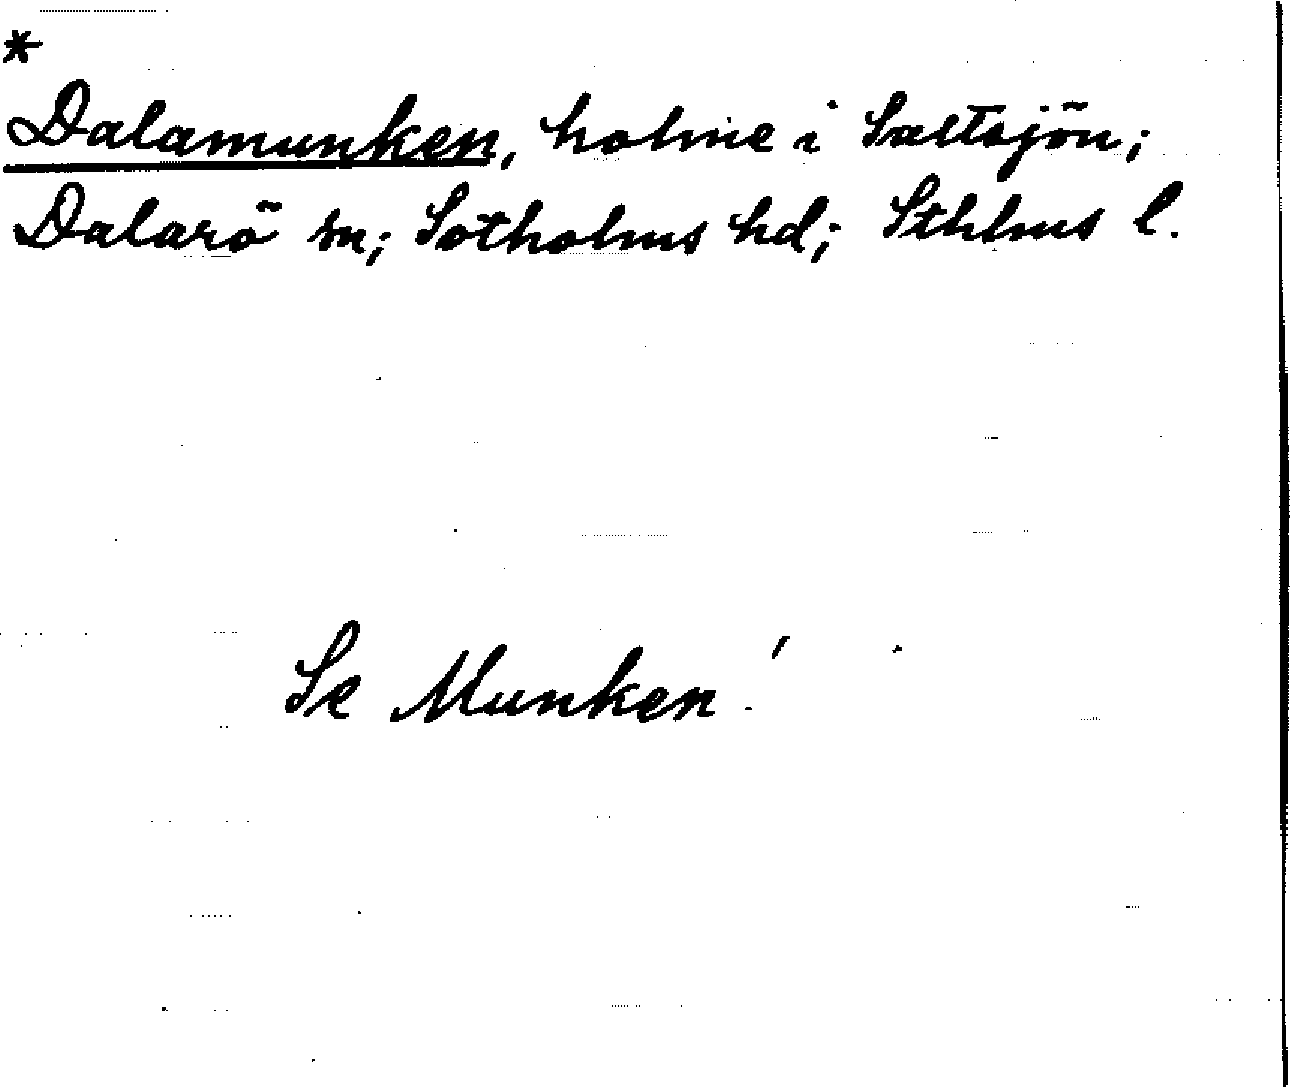 *
Dalamunken, holme i Saltsjön;
Dalarö sn; Sotholms hd; Sthlms l.
Se Munken!